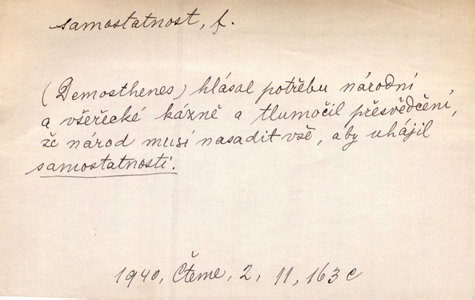 samostatnost, f.
(Demosthenes) hlásal potřebu národní
a všeřecké kázně a tlumočil přesvědčení,
že národ musí nasadit vše, aby uhájil
samostatnosti.
1940, Čteme, 2, 11, 163 c